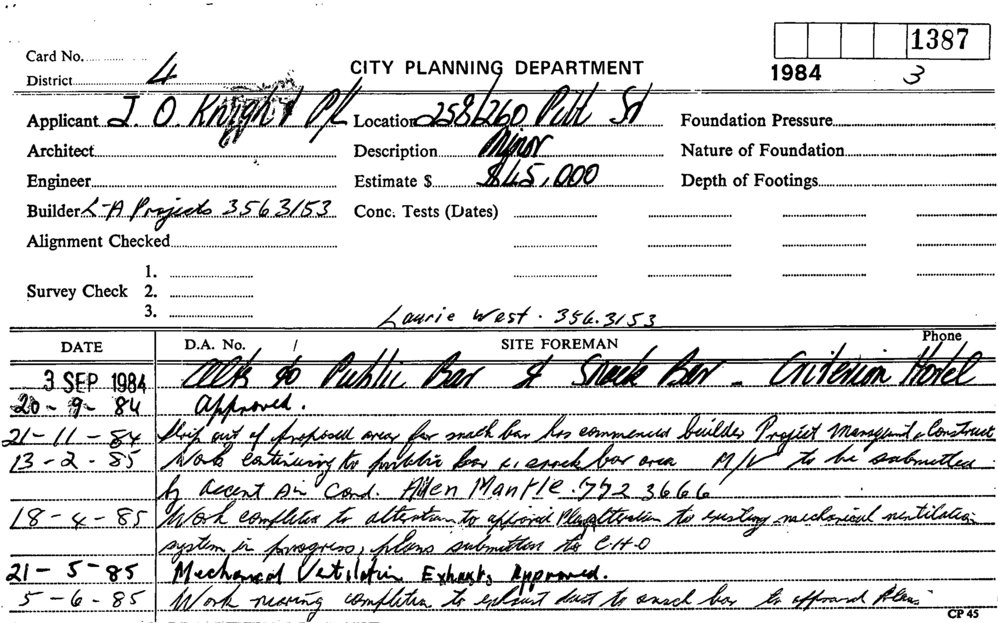 1387
Card No.
District 4
CITY PLANNING DEPARTMENT
1984 3
Applicant J. O. Knight P/L Location 258/260 Pitt St Foundation Pressure
Architect Description Minor Nature of Foundation
Engineer Estimate $ $45,000 Depth of Footings
Builder L-A Projects 356 3153 Conc. Tests (Dates)
Alignment Checked
1.
Survey Check 2.
3.
Laurie West. 356.3153
DATE D.A. No. SITE FOREMAN Phone
3 SEP 1984 Alts to Public Bar & Snack Bar - Criterion Hotel
20-9-84 Approved.
21-11-84 Strip out of proposed area for snack bar has commenced builder Project Managmt & Construct
13-2-85 Work continuing to public bar & snack bar area M/V to be submitted
by Accent Air Cond. Allen Mantle. 772 3666
18-4-85 Work completed to alteration to approved Plans alteration to existing mechanical ventilation
system in progress, plans submitted to C.H.O
21-5-85 Mechanical Ventilation Exhausts Approved.
5-6-85 Work nearing completion to exhaust duct to snack bar to approved Plans
CP 45